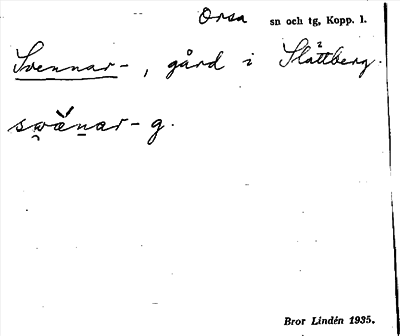 Orsa sn och tg, Kopp. l.
Svennar-, gård i Slättberg.
swänar-g.
Bror Lindén 1935.